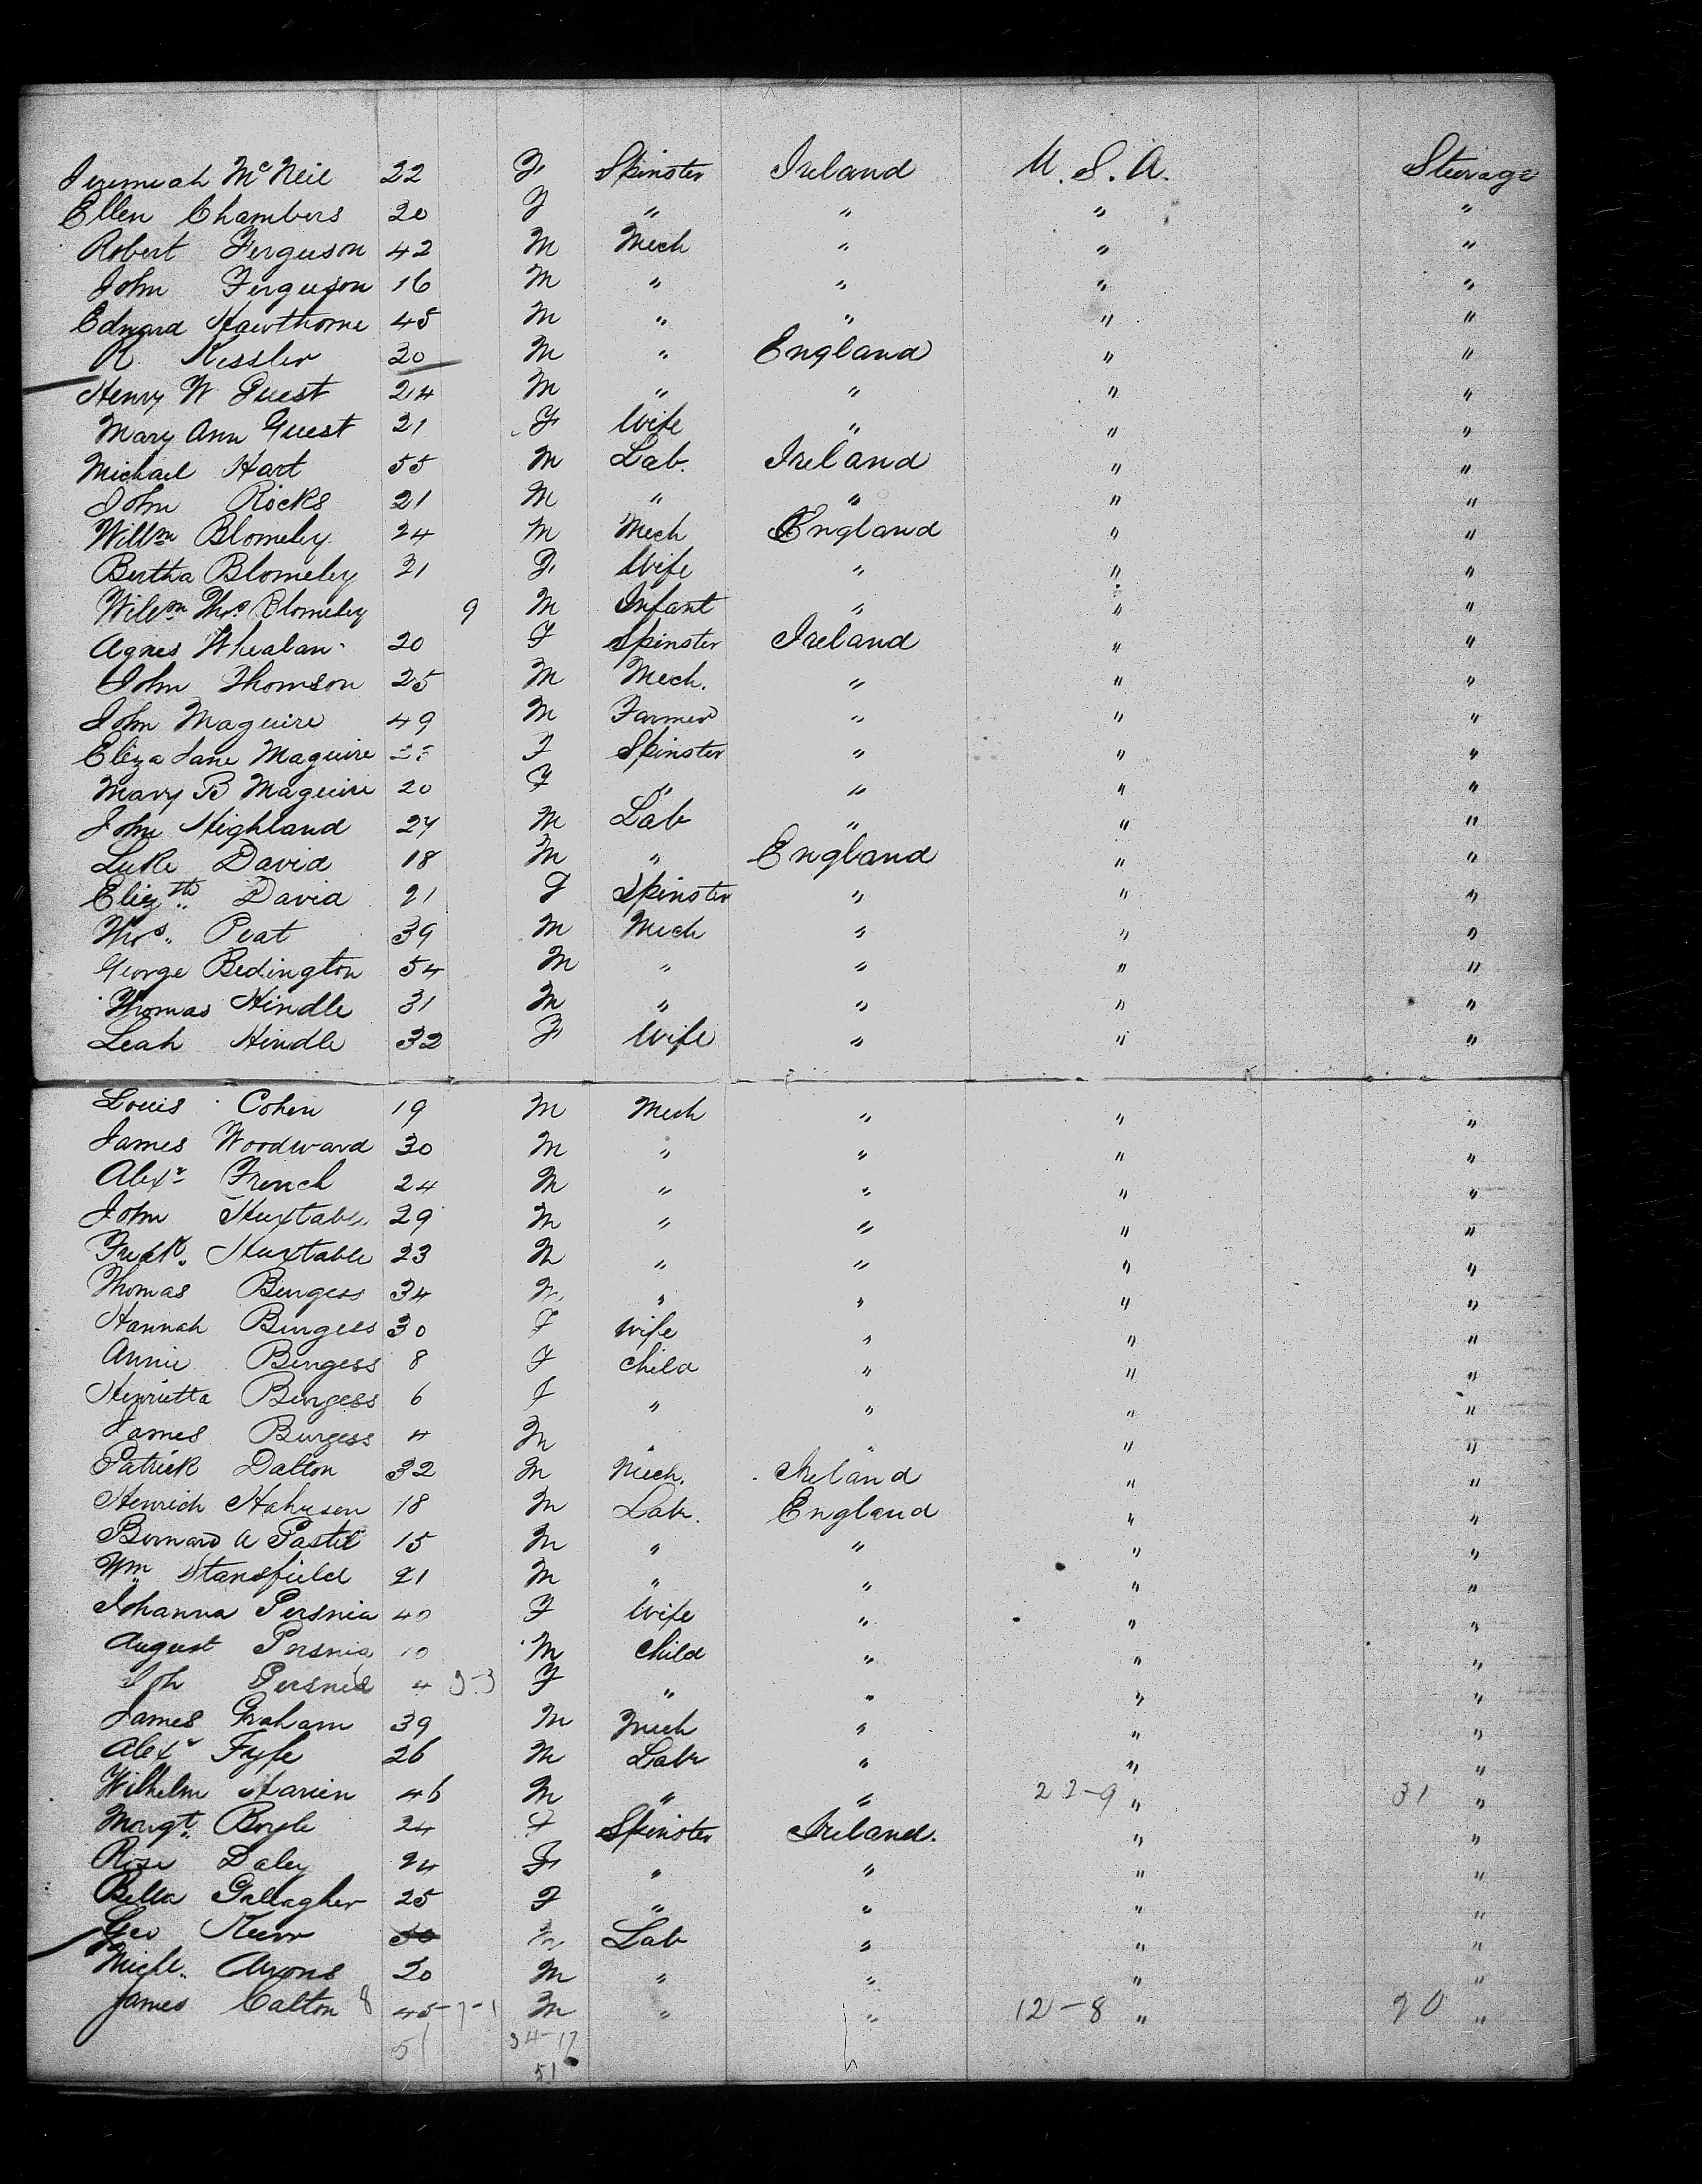 Jeremiah McNeil 22 F Spinster Ireland U.S.A. Steerage
Ellen Chambers 20 F " " " "
Robert Ferguson 42 M Mech " " "
John Ferguson 16 M " " " "
Edward Hawthorne 45 M " " " "
R Kessler 30 M " England " "
Henry W Guest 24 M " " " "
Mary Ann Guest 21 F Wife " " "
Michael Hart 55 M Lab. Ireland " "
John Rocks 21 M " " " "
Willm Blomeley 24 M Mech England " "
Bertha Blomeley 21 F Wife " " "
Willm Thos Blomeley 9 M Infant " " "
Agnes Whealan 20 F Spinster Ireland " "
John Thomson 25 M Mech. " " "
John Maguire 49 M Farmer " " "
Eliza Jane Maguire F Spinster " " "
Mary B Maguire 20 F " " " "
John Highland 24 M Lab " " "
Luke David 18 M " England " "
Elizth David 21 F Spinster " " "
Thos. Peat 39 M Mech " " "
George Bedington 54 M " " " "
Thomas Hindle 31 M " " " "
Leah Hindle 32 F Wife " " "
Louis Cohen 19 M Mech " " "
James Woodward 30 M " " " "
Alexr French 24 M " " " "
John Huxtable 29 M " " " "
Fredk. Huxtable 23 M " " " "
Thomas Burgess 34 M " " " "
Hannah Burgess 30 F Wife " " "
Annie Burgess 8 F Child " " "
Henrietta Burgess 6 F " " " "
James Burgess 4 M " " " "
Patrick Dalton 32 M Mech. Ireland " "
Henrich 18 M Labr. England " "
Bernard A 15 M " " " "
Wm Stansfield 21 M " " " "
Johanna Persnia 40 F Wife " " "
August Persnia 10 M Child " " "
Joh Persnia 4 9-3 F " " " "
James Graham 39 M Mech " " "
Alexr Fyfe 26 M Labr " " "
Wilhelm 46 M " " 22-9 " 31 "
Margt. Boyle 24 F Spinster Ireland. " "
Rose Daley 24 F " " " "
Bella Gallagher 25 F " " " "
Geo Kerr 30 M Lab " " "
Michl. 20 M " " " "
James 8 45-7-1 M " " 12-8 " 20 "
51 34-17
51